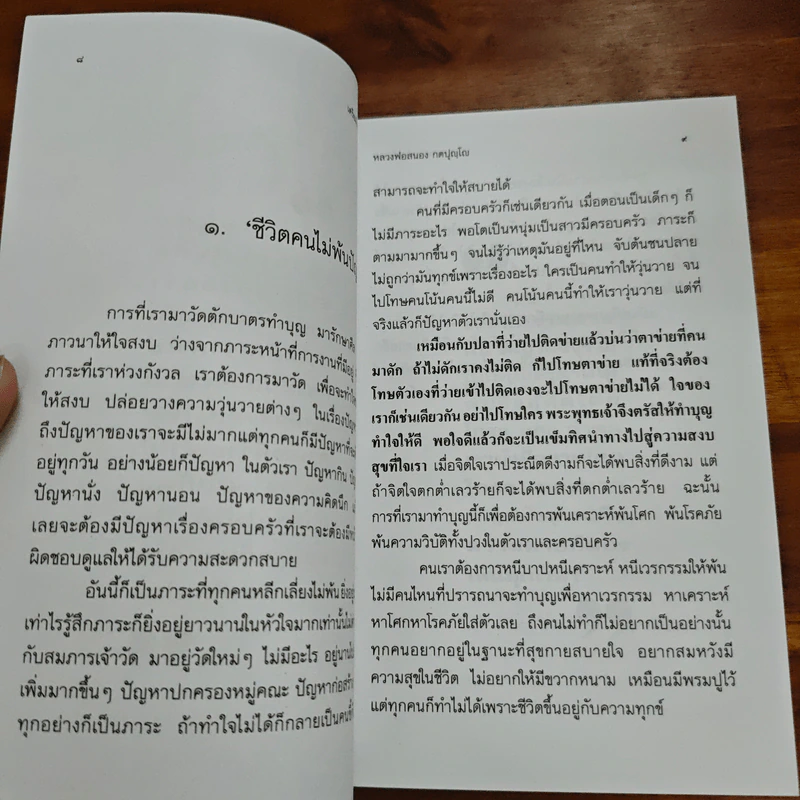 ๘
๑. ‘ชีวิตคนไม่พ้น
การที่เรามาวัดตักบาตรทำบุญ มารักษา
ภาวนาให้ใจสงบ ว่างจากภาระหน้าที่การงานที่มีอยู่
ภาระที่เราห่วงกังวล เราต้องการมาวัด เพื่อจะทำ
ให้สงบ ปล่อยวางความวุ่นวายต่างๆ ในเรื่อง
ถึงปัญหาของเราจะมีไม่มากแต่ทุกคนก็มีปัญหา
อยู่ทุกวัน อย่างน้อยก็ปัญหา ในตัวเรา ปัญหากิน
ปัญหานั่ง ปัญหานอน ปัญหาของความคิดนึก
เลยจะต้องมีปัญหาเรื่องครอบครัวที่เราจะต้อง
ผิดชอบดูแลให้ได้รับความสะดวกสบาย
อันนี้ก็เป็นภาระที่ทุกคนหลีกเลี่ยงไม่พ้น ยิ่งอยู่
เท่าไรรู้สึกภาระก็ยิ่งอยู่ยาวนานในหัวใจมากเท่านั้น
กับสมภารเจ้าวัด มาอยู่วัดใหม่ๆ ไม่มีอะไร อยู่นาน
เพิ่มมากขึ้นๆ ปัญหาปกครองหมู่คณะ ปัญหาก่อสร้าง
ทุกอย่างก็เป็นภาระ ถ้าทำใจไม่ได้ก็กลายเป็นคน
หลวงพ่อสนอง กตปุญฺโญ
๙
สามารถจะทำใจให้สบายได้
คนที่มีครอบครัวก็เช่นเดียวกัน เมื่อตอนเป็นเด็กๆ ก็
ไม่มีภาระอะไร พอโตเป็นหนุ่มเป็นสาวมีครอบครัว ภาระก็
ตามมามากขึ้นๆ จนไม่รู้ว่าเหตุมันอยู่ที่ไหน จับต้นชนปลาย
ไม่ถูกว่ามันทุกข์เพราะเรื่องอะไร ใครเป็นคนทำให้วุ่นวาย จน
ไปโทษคนโน้นคนนี้ไม่ดี คนโน้นคนนี้ทำให้เราวุ่นวาย แต่ที่
จริงแล้วก็ปัญหาตัวเรานั่นเอง
เหมือนกับปลาที่ว่ายไปติดข่ายแล้วบ่นว่าตาข่ายที่คน
มาดัก ถ้าไม่ดักเราคงไม่ติด ก็ไปโทษตาข่าย แท้ที่จริงต้อง
โทษตัวเองที่ว่ายเข้าไปติดเองจะไปโทษตาข่ายไม่ได้ ใจของ
เราก็เช่นเดียวกัน อย่าไปโทษใคร พระพุทธเจ้าจึงตรัสให้ทำบุญ
ทำใจให้ดี พอใจดีแล้วก็จะเป็นเข็มทิศนำทางไปสู่ความสงบ
สุขที่ใจเรา เมื่อจิตใจเราประณีตดีงามก็จะได้พบสิ่งที่ดีงาม แต่
ถ้าจิตใจตกต่ำเลวร้ายก็จะได้พบสิ่งที่ตกต่ำเลวร้าย ฉะนั้น
การที่เรามาทำบุญนี้ก็เพื่อต้องการพ้นเคราะห์พ้นโศก พ้นโรคภัย
พ้นความวิบัติทั้งปวงในตัวเราและครอบครัว
คนเราต้องการหนีบาปหนีเคราะห์ หนีเวรกรรมให้พ้น
ไม่มีคนไหนที่ปรารถนาจะทำบุญเพื่อหาเวรกรรม หาเคราะห์
หาโศกหาโรคภัยใส่ตัวเลย ถึงคนไม่ทำก็ไม่อยากเป็นอย่างนั้น
ทุกคนอยากอยู่ในฐานะที่สุขกายสบายใจ อยากสมหวังมี
ความสุขในชีวิต ไม่อยากให้มีขวากหนาม เหมือนมีพรมปูไว้
แต่ทุกคนก็ทำไม่ได้เพราะชีวิตขึ้นอยู่กับความทุกข์